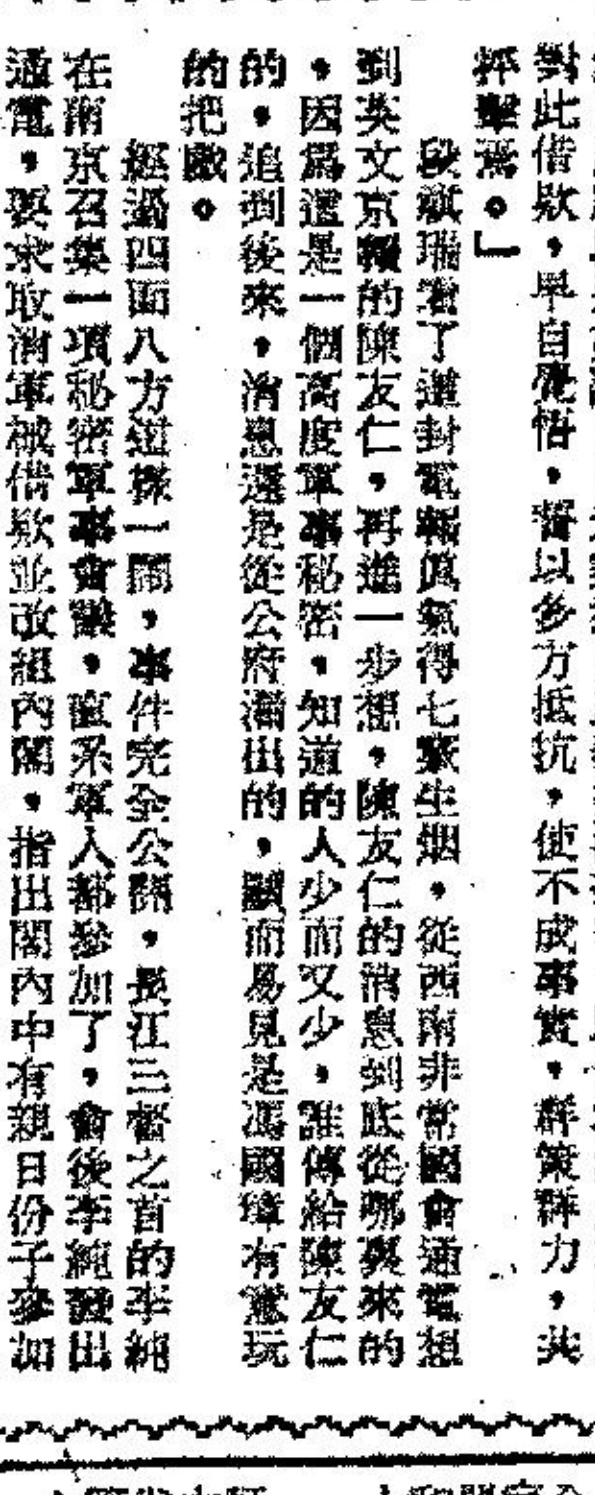 對此借欵，早自覺悟，督以多方抵抗，使不成事實，群策群力，共
抨擊焉。」
段祺瑞看了這封電報眞氣得七竅生烟，從西南非常國會通電想
到英文京報的陳友仁，再進一步想，陳友仁的消息到底從哪裏來的
，因爲這是一個高度軍事秘密，知道的人少而又少，誰傳給陳友仁
的，追到後來，消息還是從公府漏出的，顯而易見是馮國璋有意玩
的把戲。
經過四面八方這樣一鬧，事件完全公開，長江三督之首的李純
在南京召集一項秘密軍事會議，直系軍人都參加了，會後李純發出
通電，要求取消軍械借欵並改組內閣，指出閣內中有親日份子參加